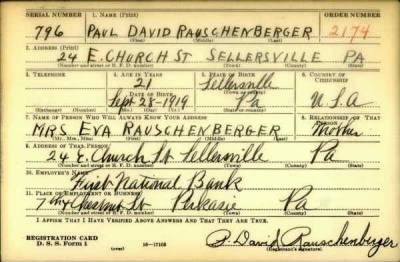 SERIAL NUMBER 1. NAME (Print) ORDER NUMBER
796 PAUL DAVID RAUSCHENBERGER 2174
(First) (Middle) (Last)
2. ADDRESS (Print)
24 E. CHURCH ST SELLERSVILLE PA
(Number and street or R. F. D. number) (Town) (County) (State)
3. TELEPHONE 4. AGE IN YEARS 5. PLACE OF BIRTH 6. COUNTRY OF CITIZENSHIP
21 Sellersville
DATE OF BIRTH (Town or county)
Sept 28-1919 Pa U.S.A
(Exchange) (Number) (Mo.) (Day) (Yr.) (State or country)
7. NAME OF PERSON WHO WILL ALWAYS KNOW YOUR ADDRESS 8. RELATIONSHIP OF THAT PERSON
MRS EVA RAUSCHENBERGER Mother
(Mr., Mrs., Miss) (First) (Middle) (Last)
9. ADDRESS OF THAT PERSON
24 E. Church St Sellersville Pa
(Number and street or R. F. D. number) (Town) (County) (State)
10. EMPLOYER'S NAME
First National Bank
11. PLACE OF EMPLOYMENT OR BUSINESS
7th & Chestnut St Perkasie Pa
(Number and street or R. F. D. number) (Town) (County) (State)
I AFFIRM THAT I HAVE VERIFIED ABOVE ANSWERS AND THAT THEY ARE TRUE.
REGISTRATION CARD
D. S. S. Form 1 (over) 16-17105 P. David Rauschenberger
(Registrant's signature)